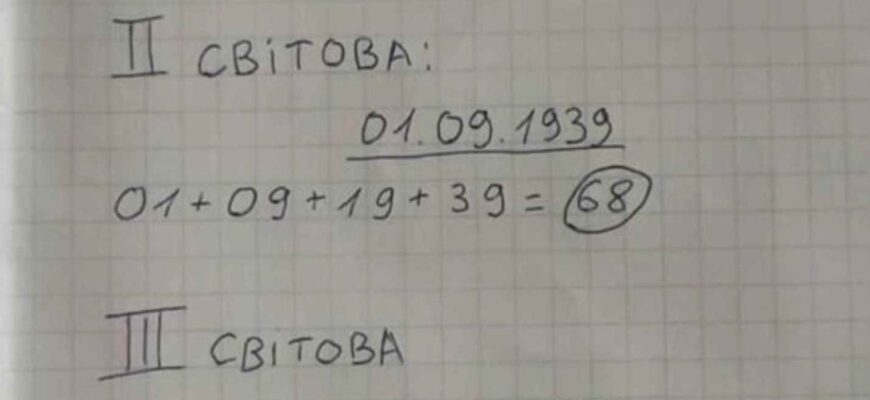 II СВІТОВА:
01.09.1939
01+09+19+39=68
III СВІТОВА